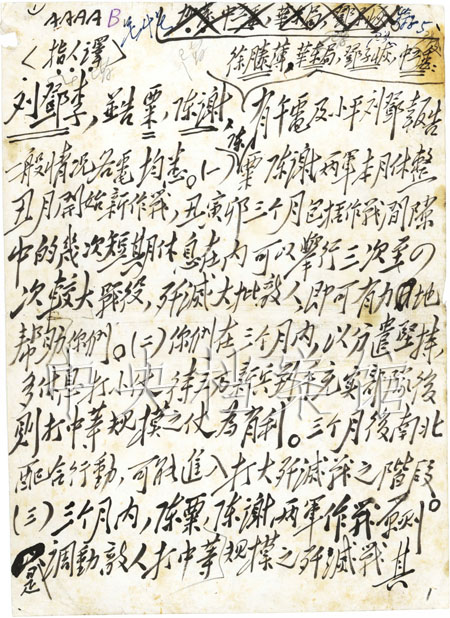 AAAA B
<指人譯>
徐滕薄,華東局,鄧子恢,中工委
刘鄧李,並告粟,陈謝,
有午電及小平刘鄧報告
一般情况各電均悉。(一)陈粟陈謝两軍本月休整
丑月開始新作戰,丑寅卯三个月包括作戰間隙
中的幾次短期休息在内可以舉行三次至四
次較大戰役,殲滅大批敵人即可有力地
幫助你們。(二)你們在三个月内,以分遣堅持,
多休息打小仗,待 新兵 充實部隊後
則打中等規模之仗為有利。三个月後南北
配合行動,可能進入打大殲滅戰之階段。
(三)三个月内,陈粟,陈謝两軍作戰原則
是調動敵人打中等規模之殲滅戰其
中央档案馆